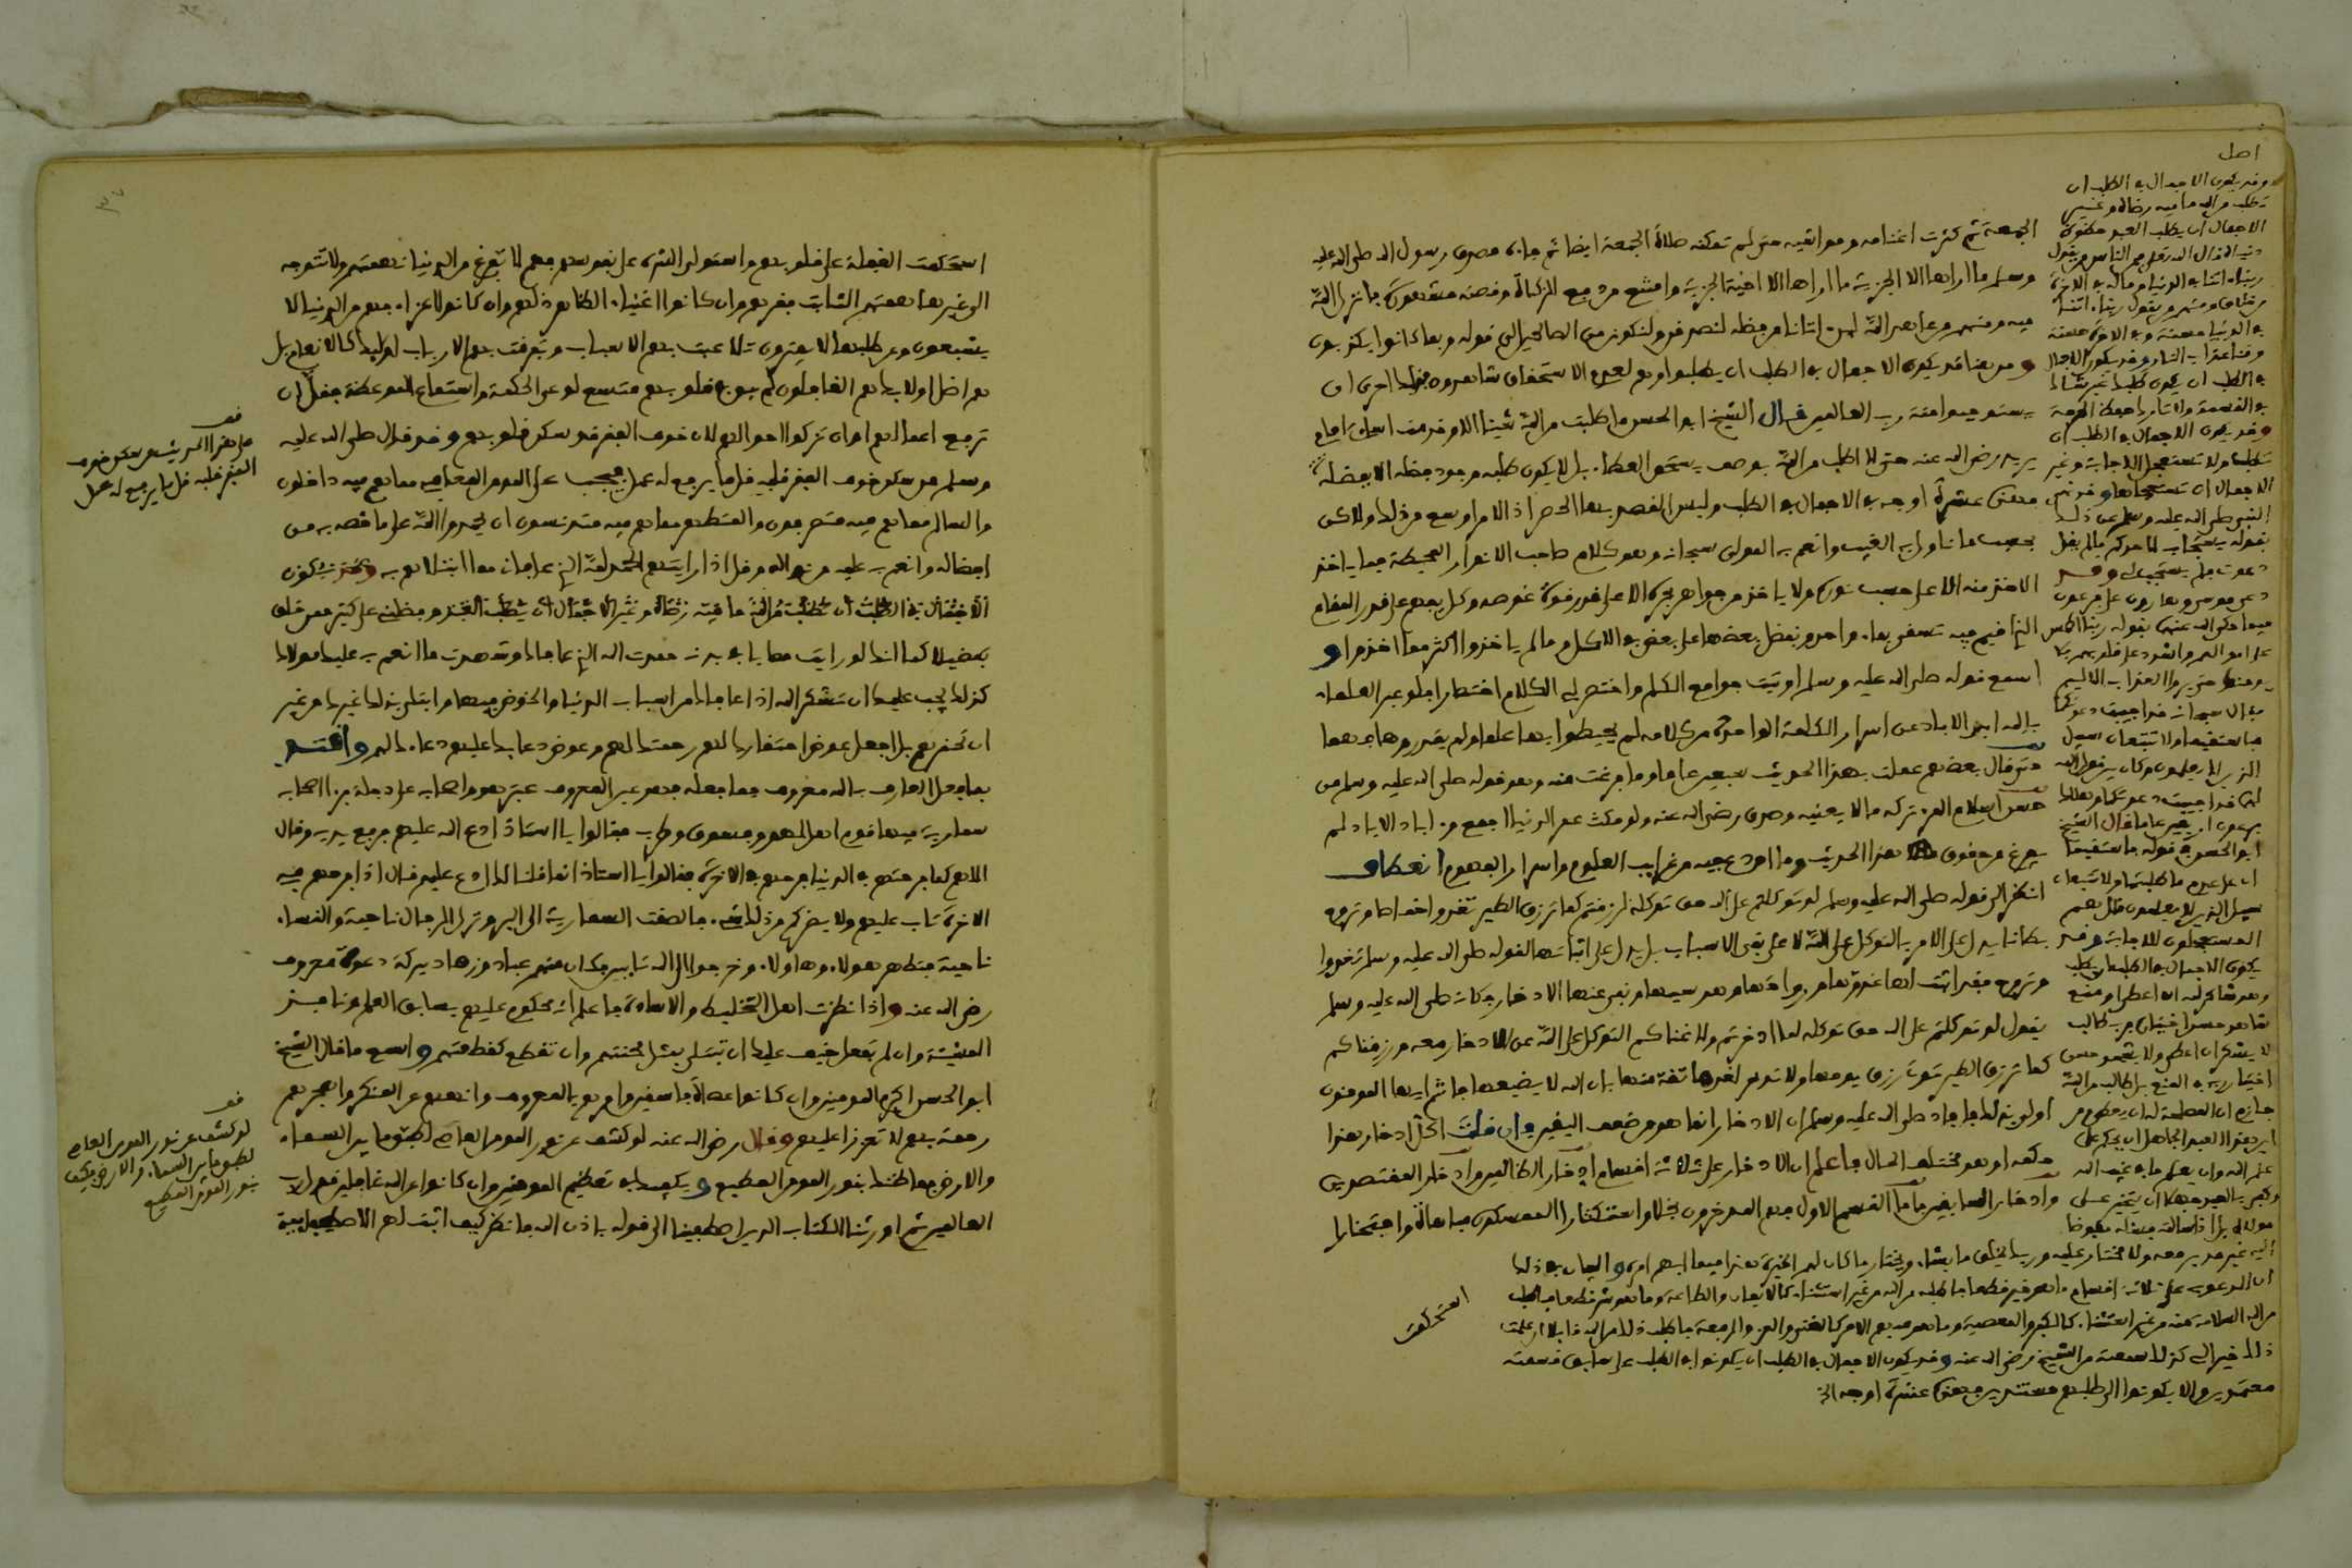 الجمعة ثم كثرت اغنامه ومواشيه حتى لم تمكنه صلاة الجمعة ايضا ثم جاءه مصدق رسول الله صلى الله عليه
وسلم ما اراها الا الجزية ما اراها الا اخية الجزية وامتنع من دفع الزكاة وقصته مشهورة فانزل الله
فيه ومنهم من عاهد الله لئن اتانا من فضله لنصدقن ولنكونن من الصالحين الى قوله وبما كانوا يكذبون
ومن هنا قد يكون الاجمال في الطلب ان يطلبوا وهم لعدم الاستحقاق شاهدون فذلك احرى ان
يستوجبوا منة رب العالمين قال الشيخ ابو الحسن ما طلبت من الله شيئا الا وقدمت اساءتي امامي
يريد رضي الله عنه حتى لا اطلب من الله بوصف يستحق العطاء بل لا يكون طلبه وجود فضله الا بفضله
فهذه عشرة اوجه في الاجمال في الطلب وليس القصد بها الحصر اذ الامر اوسع من ذلك ولاكن
بحسب ما ناول الغيب وانعم به المولى سبحانه وهو كلام صاحب الانوار المحيطة فما ياخذ
الاخذ منه الا على حسب نوره ولا ياخذ من جواهر بحره الا على قدر قوة غوصه وكل يفهم على قدر المقام
الذي اقيم فيه تسقى بماء واحد ونفضل بعضها على بعض في الاكل وما لم ياخذوا اكثر مما اخذوا و
اسمع قوله صلى الله عليه وسلم اوتيت جوامع الكلم واختصر لي الكلام اختصارا فلو عبر العلماء
بالله ابد الاباد عن اسرار الكلمة الواحدة من كلامه لم يحيطوا بها علما ولم يقدروها فهما
حتى قال بعضهم عملت بهذا الحديث سبعين عاما وما فرغت منه وهو قوله صلى الله عليه وسلم من
حسن اسلام المرء تركه ما لا يعنيه وصدق رضي الله عنه ولو مكث عمر الدنيا اجمع وابد الاباد لم
يفرغ من حقوق هذا الحديث وما اودع فيه من غرايب العلوم واسرار الفهوم انعطاف
انظر الى قوله صلى الله عليه وسلم لو توكلتم على الله حق توكله لرزقتم كما ترزق الطير تغدوا خماصا وتروح
بطانا يدل على الامر بالتوكل على الله لا على نفي الاسباب بل يدل على اثباتها لقوله صلى الله عليه وسلم تغدوا
وتروح فقد اثبت لها غدوتها ورواحها وهو سببها ونفى عنها الادخار وكانه صلى الله عليه وسلم
يقول لو توكلتم على الله حق توكله لما ادخرتم ولاغناكم التوكل على الله عن الادخار معه ورزقكم
كما ترزق الطير تؤتى رزق يومها ولا تدخر لغدها ثقة منها بان الله لا يضيعها فانتم ايها المومنون
اولى بذلك فافاد صلى الله عليه وسلم ان الادخار انما هو من ضعف اليقين وان قلت اكل ادخار هذا
حكمه او هو مختلف الحال فاعلم ان الادخار على ثلاثة اقسام ادخار الظالمين وادخار المقتصدين
وادخار السابقين فاما القسم الاول فهم المدخرون بخلا واستكثارا الممسكون مباهاة وافتخارا
استحكمت
اصل
وقد يكون الاجمال في الطلب ان
تطلب من الله ما فيه رضاه وغير
الاجمال ان يطلب العبد حظوظ
دنياه قال الله تعلى فمن الناس من يقول
ربنا ءاتنا في الدنيا وما له في الاخرة
من خلاق ومنهم من يقول ربنا ءاتنا
في الدنيا حسنة وفي الاخرة حسنة
وقنا عذاب النار وقد يكون الاجمال
في الطلب ان يكون طلبا غير شاك
في القسمة ولا تارك حفظ الحرمة
وقد يكون الاجمال في الطلب ان
تطلب ولا تستعجل الاجابة وغير
الاجمال ان تستعجلها وقد نهى
النبي صلى الله عليه وسلم عن ذلك
بقوله يستجاب لاحدكم ما لم يقل
دعوت فلم يستجب لي وقد
دعى موسى وهارون على فرعون
فيما حكى الله عنهما بقوله ربنا اطمس
على اموالهم واشدد على قلوبهم فلا
يومنوا حتى يروا العذاب الاليم
قال سبحانه قد اجيبت دعوتكما
فاستقيما ولا تتبعان سبيل
الذين لا يعلمون وكان بين قول الله
لهما قد اجيبت دعوتكما وهلاك
فرعون اربعين عاما قال الشيخ
ابو الحسن في قوله فاستقيما
اي على عدم استعجال ما طلبتما ولا تتبعان
سبيل الذين لا يعلمون قال هم
المستعجلون للاجابة وقد
يكون الاجمال في الطلب ان يطلب
وهو شاكر لله ان اعطي او منع
شاهد حسن اختياره فرب طالب
لا يشكر ان اعطي ولا يشهد حسن
اختيار ربه في المنع بل طالب من الله
جازم ان المصلحة له ان يعطى من
اين لهذا العبد الجاهل ان يحكم على
علم الله وان يعلم ما في غيب الله
وكفى بالعبد جهلا ان يتخير على
مولاه بل اذا سالته فسله مفوضا
اليه غير مدبر معه ولا مختار عليه وربك يخلق ما يشاء ويختار ما كان لهم الخيرة هذا فيما ابهم امره والبيان في ذلك
ان المدعو به على ثلاثة اقسام ما هو خير قطعا فاطلبه من الله من غير استثناء كالايمان والطاعة وما هو شر قطعا فاطلب
من الله السلامة منه من غير استثناء كالكفر والمعصية وما هو مبهم الامر كالغنى والعز والرفعة فاطلب ذلك من الله قايلا ان علمت
ذلك خيرا لي كذلك سمعته من الشيخ رضي الله عنه وقد يكون الاجمال في الطلب ان يكونوا في الطلب على سابق قسمته
معتمدين والا يكونوا الى طلبهم مستندين فهذه عشرة اوجه الخ
استحكمت الغفلة على قلوبهم واستولى الشره على نفوسهم فهم لا تفرغ من الدنيا نهمتهم ولا تتوجه
الى غيرها همتهم الثابت فقرهم وان كانوا اغنياء الظاهر ذلهم وان كانوا اعزاء فهم من الدنيا لا
يشبعون وعن طلبها لا يفترون تلاعبت بهم الاسباب وتفرقت بهم الارباب اولئك كالانعام بل
هم اضل اولئك هم الغافلون لم يبق في قلوبهم متسع لوعي الحكمة واستماع الموعظة فقل ان
ترفع اعمالهم او ان تزكوا احوالهم لان خوف الفقر قد سكن قلوبهم وقد قال صلى الله عليه
وسلم من سكن خوف الفقر قلبه قل ما يرفع له عمل فيجب على المومن المعافى مما هم فيه داخلون
والسالم مما هم فيه متصرفون والمتطهر مما هم فيه متدنسون ان يحمدوا الله على ما خصه به من
افضاله وانعم به عليه من نواله وقل اذا رايتهم الحمد لله الذي عافاني مما ابتلاهم به وقد يكون
الاجمال في الطلب ان تطلب من الله ما فيه رضاه وغير الاجمال ان
تفضيلا كما انك لو رايت مصابا في بدنه حمدت الله الذي عافاك وشهدت ما انعم به عليك مولاك
كذلك يجب عليك ان تشكر الله اذا عافاك من اسباب الدنيا والخوض فيها وابتلى بذلك غيرك من غير
ان تحقرهم بل اجعل عوض احتقارك لهم رحمتك لهم وعوض دعايك عليهم دعاءك لهم واقتد
بما فعل العارف بالله معروف فما فعله فهو عين المعروف عبر هو واصحابه على دجلة فرءا اصحابه
سمارية فيها قوم اهل لهو وفسوق وطرب فقالوا يا استاذ ادع الله عليهم فرفع يديه وقال
اللهم كما فرحتهم في الدنيا فرحهم في الاخرة فقالوا يا استاذ انما قلنا لك ادع عليهم قال اذا فرحهم في
الاخرة تاب عليهم ولا يضركم من ذلك شيء فالصقت السمارية الى البر ونزل الرجال ناحية والنساء
ناحية فتطهر هؤلاء وهاؤلاء وخرجوا الى الله تايبين فكان منهم عباد وزهاد ببركة دعوة معروف
رضي الله عنه واذا نظرت اهل التخليط والاساءة فاعلم انه محكوم عليهم بسابق العلم ونافذ
المشيئة وان لم تفعل خيف عليك ان تبتلى بمثل محنتهم وان تقطع كقطعتهم واسمع ما قال الشيخ
ابو الحسن اكرم المومنين وان كانوا عصاة فاسقين وامرهم بالمعروف وانههم عن المنكر واهجرهم
رحمة بهم لا تعززا عليهم وقال رضي الله عنه لو كشف عن نور المومن العاصي لطبق ما بين السماء
والارض فما ظنك بنور المومن المطيع ويكفيك في تعظيم المومنين وان كانوا عن الله غافلين قول رب
العالمين ثم اورثنا الكتاب الذين اصطفينا الى قوله باذن الله فانظر كيف اثبت لهم الاصطفايية
قف
على هذا الحديث من سكن خوف
الفقر قلبه قل ما يرفع له عمل
قف
لو كشف عن نور المومن العاصي
لطبق ما بين السماء والارض فكيف
بنور المومن المطيع